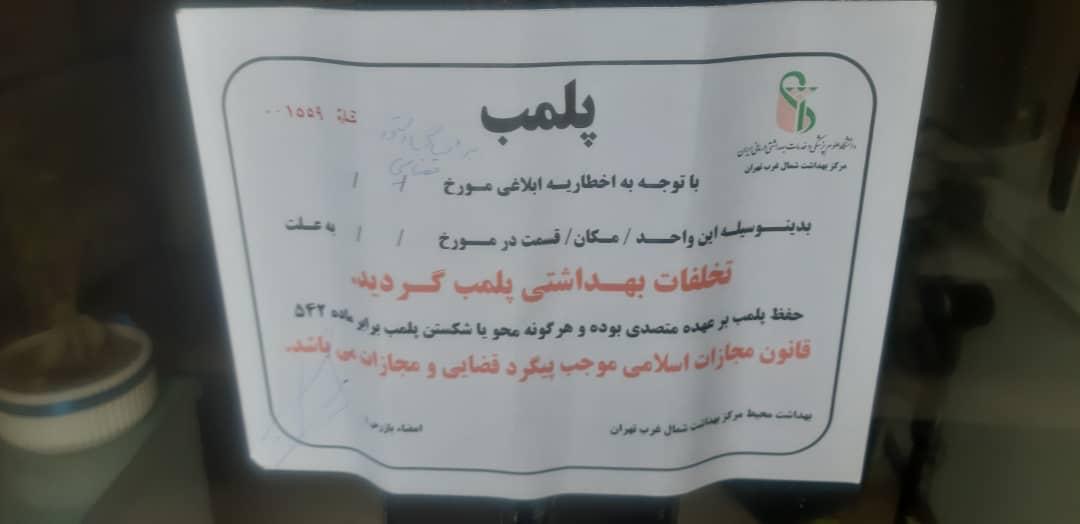 دانشگاه علوم پزشکی و خدمات بهداشتی درمانی ایران
مرکز بهداشت شمال غرب تهران
پلمب
شماره ۰۰۱۵۵۹
قضایی
با توجه به اخطاریه ابلاغی مورخ / /
بدینوسیله این واحد / مکان / قسمت در مورخ / / به علت
تخلفات بهداشتی پلمب گردید.
حفظ پلمب بر عهده متصدی بوده و هرگونه محو یا شکستن پلمب برابر ماده ۵۴۲
قانون مجازات اسلامی موجب پیگرد قضایی و مجازات می باشد.
بهداشت محیط مرکز بهداشت شمال غرب تهران
امضاء بازرس